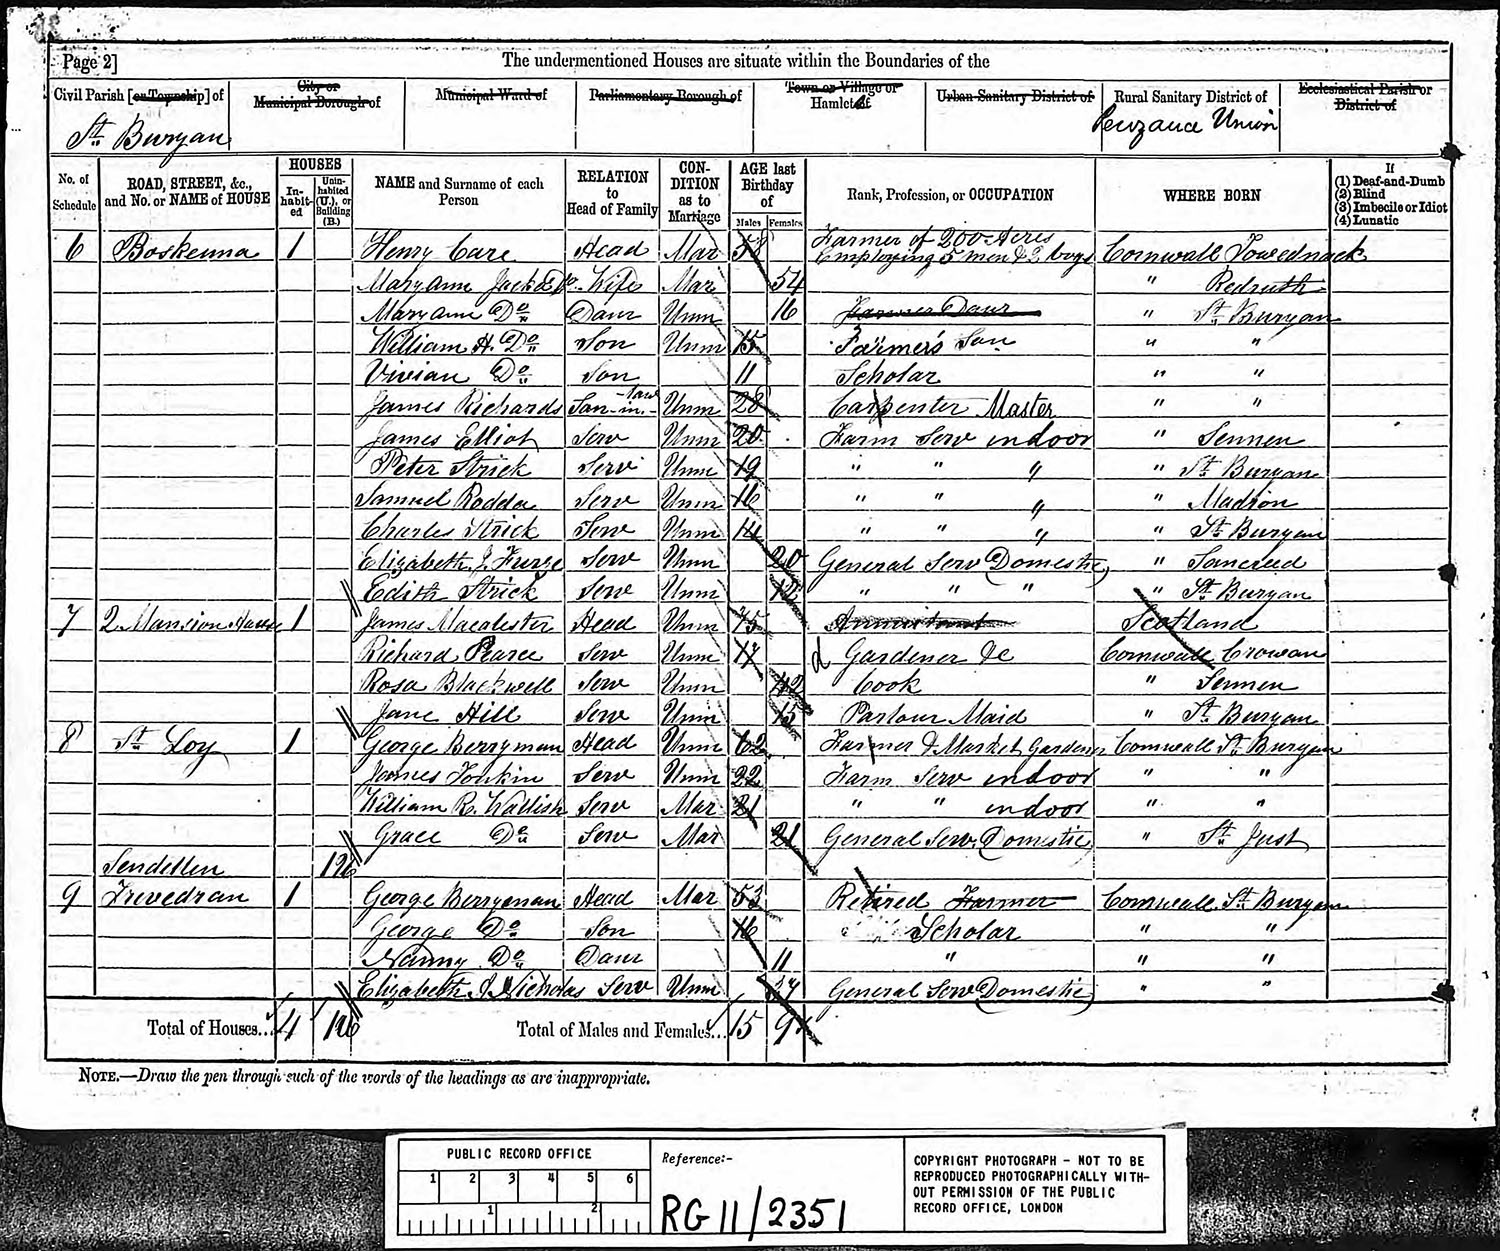 Page 2] The undermentioned Houses are situate within the Boundaries of the
Civil Parish [or Township] of City or Municipal Borough of Municipal Ward of Parliamentary Borough of Town or Village or Hamlet of Urban Sanitary District of Rural Sanitary District of Ecclesiastical Parish or District of
St. Buryan Penzance Union
No. of Schedule ROAD, STREET, &c., and No. or NAME of HOUSE HOUSES Inhabited Uninhabited (U.), or Building (B.) NAME and Surname of each Person RELATION to Head of Family CONDITION as to Marriage AGE last Birthday of Males Females Rank, Profession, or OCCUPATION WHERE BORN If (1) Deaf-and-Dumb (2) Blind (3) Imbecile or Idiot (4) Lunatic
6 Boskenna 1 Henry Care Head Mar 58 Farmer of 200 Acres Employing 5 men & 2 boys Cornwall Towednack
Mary Ann Jacka Do Wife Mar 54 " Redruth
Mary Ann Do Daur Unm 16 Farmer Daur " St. Buryan
William H. Do Son Unm 15 Farmer's Son " "
Vivian Do Son 11 Scholar " "
James Richards Son-in-law Unm 28 Carpenter Master " "
James Elliot Serv Unm 20 Farm Serv indoor " Sennen
Peter Strick Serv Unm 19 " " " " St. Buryan
Samuel Rodda Serv Unm 16 " " " " Madron
Charles Strick Serv Unm 14 " " " " St. Buryan
Elizabeth J. Furze Serv Unm 20 General Serv (Domestic) " Sancreed
Edith Strick Serv Unm " " " " St. Buryan
7 2 Mansion House 1 James Macalister Head Unm 45 Annuitant Scotland
Richard Pearce Serv Unm 17 Gardener &c Cornwall Crowan
Rosa Blackwell Serv Unm 42 Cook " Sennen
Jane Hill Serv Unm 15 Parlour Maid " St. Buryan
8 St. Loy 1 George Berryman Head Unm 62 Farmer & Market Gardener Cornwall St. Buryan
James Tonkin Serv Unm 22 Farm Serv indoor " "
William R. Wallish Serv Mar 21 " " indoor " "
Grace Do Serv Mar 21 General Serv (Domestic) " St. Just
Sendellen
9 Trevedran 1 George Berryman Head Mar 53 Retired Farmer Cornwall St. Buryan
George Do Son 16 Scholar " "
Nanny Do Daur 11 " " "
Elizabeth J. Nicholas Serv Unm General Serv (Domestic) " "
Total of Houses... 4 Total of Males and Females... 15 9
NOTE.—Draw the pen through such of the words of the headings as are inappropriate.
PUBLIC RECORD OFFICE
1 2 3 4 5 6
1 2
Reference:-
RG 11/2351
COPYRIGHT PHOTOGRAPH - NOT TO BE
REPRODUCED PHOTOGRAPHICALLY WITH-
OUT PERMISSION OF THE PUBLIC
RECORD OFFICE, LONDON